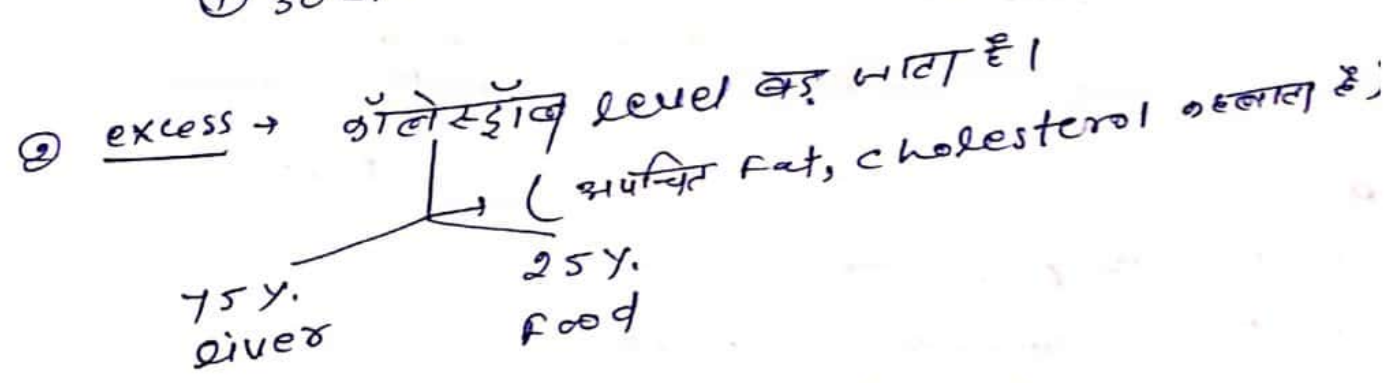 ② excess → कॉलेस्ट्रॉल level बड़ जाता है।
→ ( अपचित Fat, cholesterol कहलाता है)
75%. 25%.
liver Food